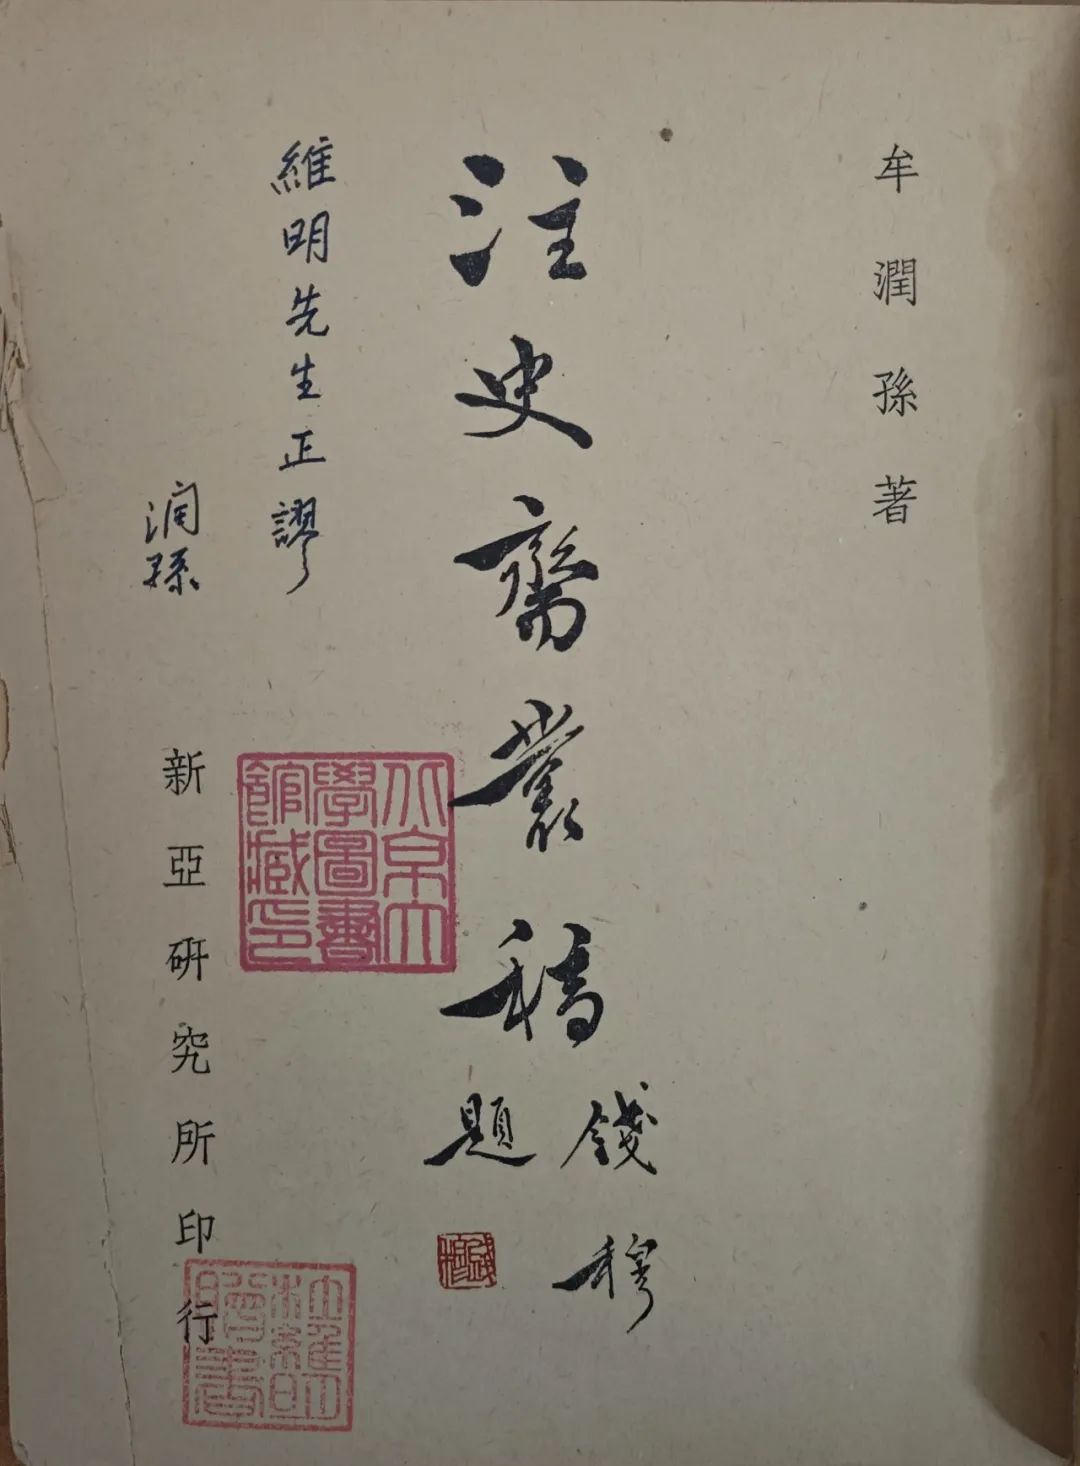 牟潤孫著
注史齋叢稿
錢穆
題
維明先生正謬
潤孫
新亞研究所印行
北京大
學圖書
館藏印
杜維明
贈書